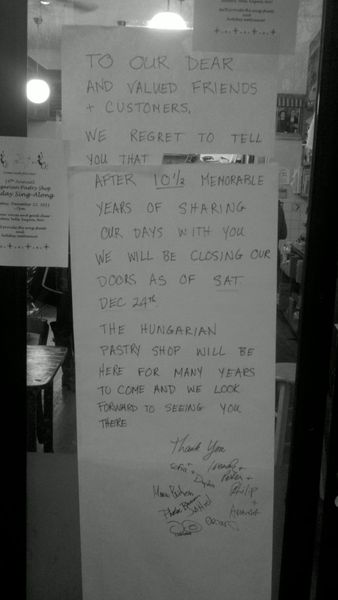 holiday merriment!
TO OUR DEAR
AND VALUED FRIENDS
+ CUSTOMERS.
WE REGRET TO TELL
YOU THAT
AFTER 10½ MEMORABLE
YEARS OF SHARING
OUR DAYS WITH YOU
WE WILL BE CLOSING OUR
DOORS AS OF SAT.
DEC 24th
THE HUNGARIAN
PASTRY SHOP WILL BE
HERE FOR MANY YEARS
TO COME AND WE LOOK
FORWARD TO SEEING YOU
THERE
Thank You
Wendy +
Peter +
Philip
+
garian Pastry Shop
day Sing-Along
holiday merriment!